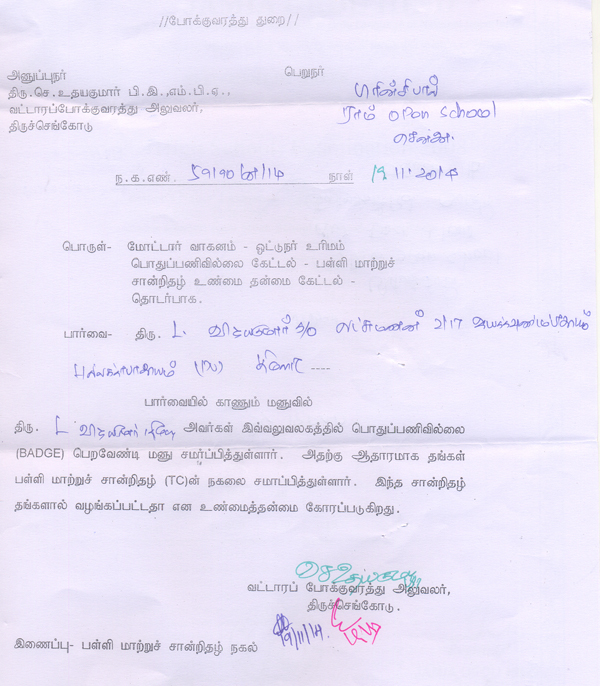 //போக்குவரத்து துறை//
அனுப்புநர் பெறுநர்
திரு.செ.உதயகுமார் பி.இ.,எம்.பி.ஏ., பிரின்சிபால்
வட்டாரப்போக்குவரத்து அலுவலர், ராம் open school
திருச்செங்கோடு சென்னை.
ந.க.எண். 59190 /14 நாள் 19.11.2014
பொருள்- மோட்டார் வாகனம் - ஓட்டுநர் உரிமம்
பொதுப்பணிவில்லை கேட்டல் - பள்ளி மாற்றுச்
சான்றிதழ் உண்மை தன்மை கேட்டல் -
தொடர்பாக.
பார்வை- திரு. L. விஜயகுமார் S/o லட்சுமணன் 2/17
----
பார்வையில் காணும் மனுவில்
திரு. L விஜயகுமார் அவர்கள் இவ்வலுவலகத்தில் பொதுப்பணிவில்லை
(BADGE) பெறவேண்டி மனு சமர்ப்பித்துள்ளார். அதற்கு ஆதாரமாக தங்கள்
பள்ளி மாற்றுச் சான்றிதழ் (TC)ன் நகலை சமாப்பித்துள்ளார். இந்த சான்றிதழ்
தங்களால் வழங்கப்பட்டதா என உண்மைத்தன்மை கோரப்படுகிறது.
வட்டாரப் போக்குவரத்து அலுவலர்,
திருச்செங்கோடு.
19/11/14
இணைப்பு- பள்ளி மாற்றுச் சான்றிதழ் நகல்